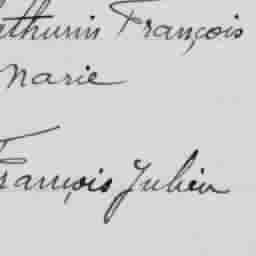 athurin François
Marie
François Julien